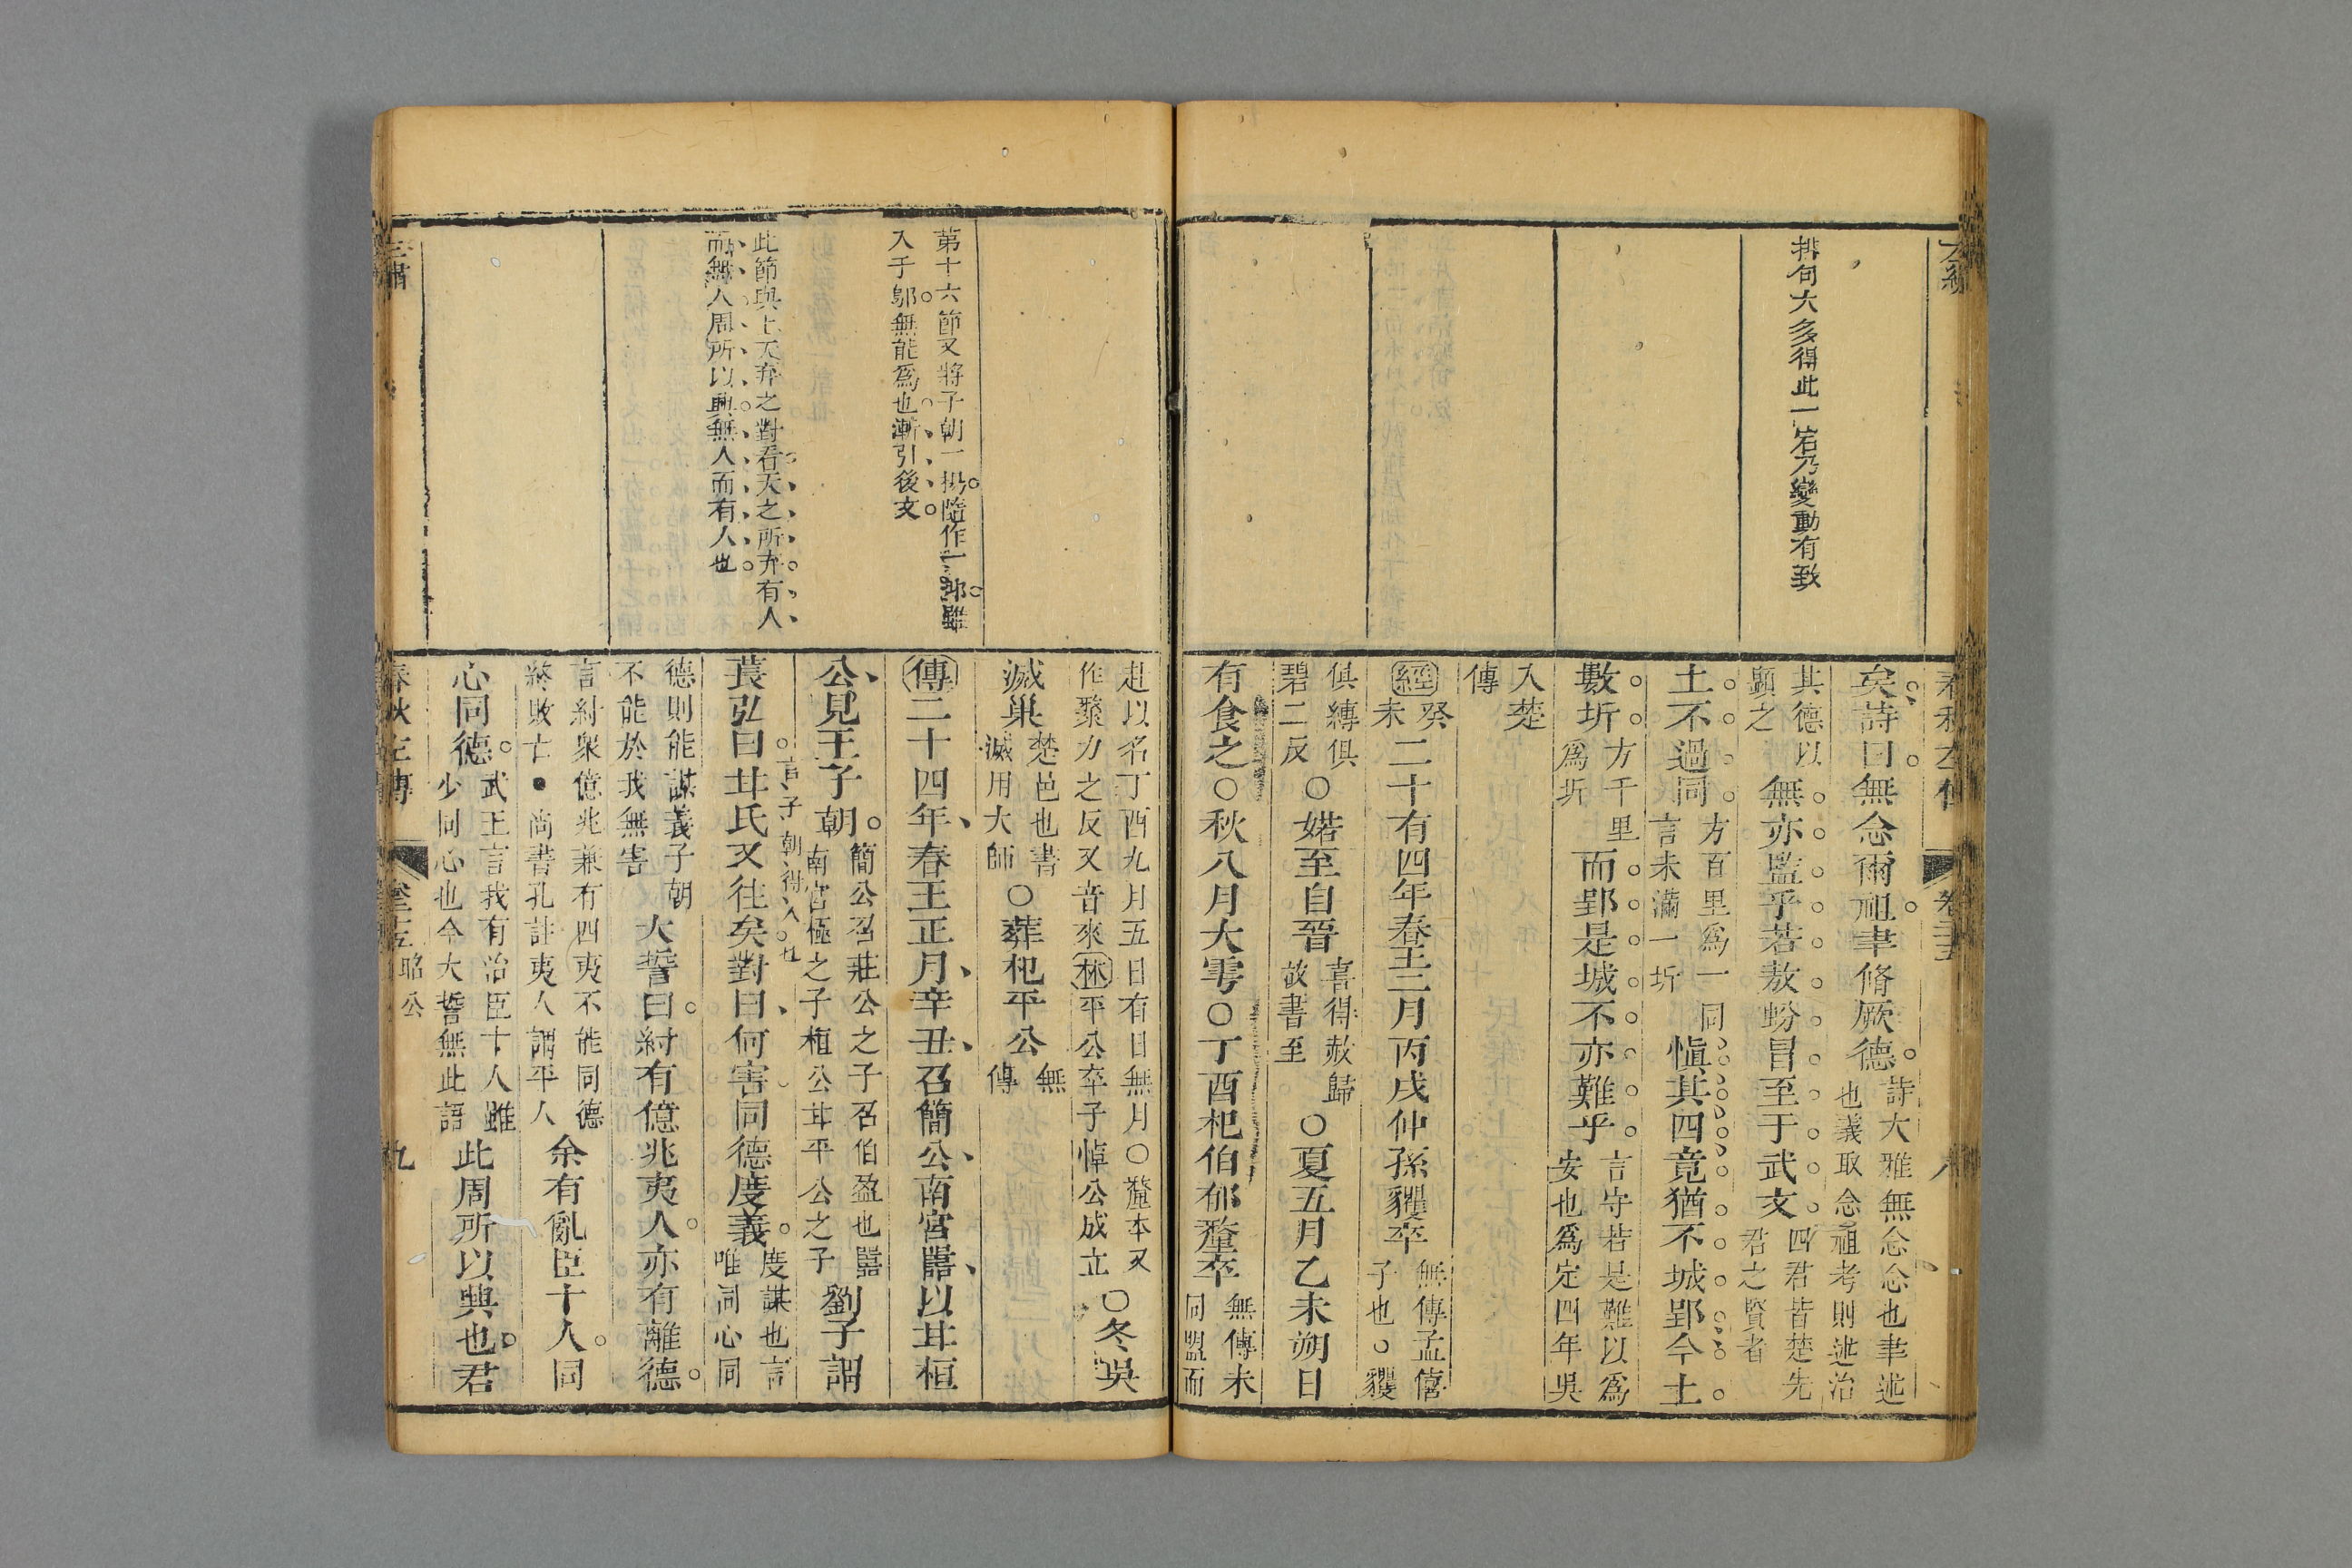 排句太多得此一宕乃變動有致
矣詩曰無念爾祖聿脩厥德詩大雅無念念也聿述也義取念祖考則述治
其德以顯之無亦監乎若敖蚡冒至于武文四君皆楚先君之賢者
土不過同方百里爲一同言未滿一圻慎其四竟猶不城郢今土
數圻方千里爲圻而郢是城不亦難乎言守若是難以爲安也爲定四年吳
入楚傳
經癸未二十有四年春王二月丙戌仲孫貜卒無傳孟僖子也○貜
俱縛俱碧二反○婼至自晉喜得赦歸故書至○夏五月乙未朔日
有食之○秋八月大雩○丁酉杞伯郁釐卒無傳未同盟而
春秋左傳
八
第十六節又將子朝一
隨作一
雖
入于鄔無能爲也漸引後文
此節與上天弃之對看天之所弃有人
而無人周所以興無人而有人也
赴以名丁酉九月五日有日無月○釐本又作斄力之反又音來林平公卒子悼公成立○冬吳
滅巢楚邑也書滅用大師○葬杞平公無傳
傳二十四年春王正月辛丑召簡公南宮嚚以甘桓
公見王子朝簡公召莊公之子召伯盈也嚚南宮極之子桓公甘平公之子劉子謂
萇弘曰甘氏又往矣言子朝得人也對曰何害同德度義度謀也言唯同心同
德則能謀義子朝不能於我無害大誓曰紂有億兆夷人亦有離德
言紂衆億兆兼有四夷不能同德終敗亡●尚書孔註夷人謂平人余有亂臣十人同
心同德武王言我有治臣十人雖少同心也今大誓無此語此周所以興也君
春秋左傳
昭公
九